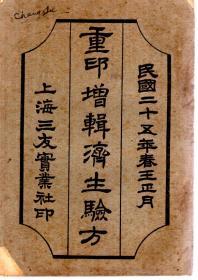 Changshu
民國二十五年春王正月
重印增輯濟生驗方
上海三友實業社印